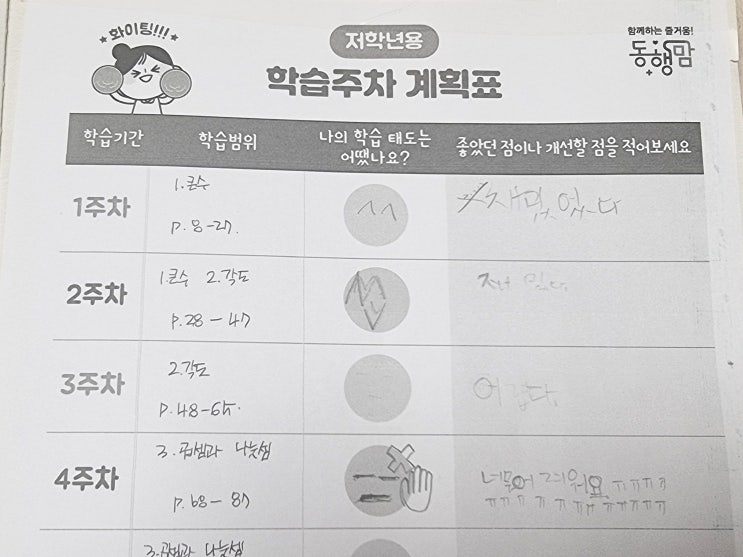 화이팅!!!
저학년용
함께하는 즐거움!
동행맘
학습주차 계획표
학습기간 학습범위 나의 학습 태도는 어땠나요? 좋았던 점이나 개선할 점을 적어보세요
1주차
1.큰수
P.8-27.
재밌었다
2주차
1.큰수 2.각도
P.28-47
3주차
2.각도
P.48-65.
어렵다
4주차
3.곱셈과 나눗셈
P.68-87
너무 어려워요 ㅠㅠㅠㅠ
3.곱셈과 나눗셈